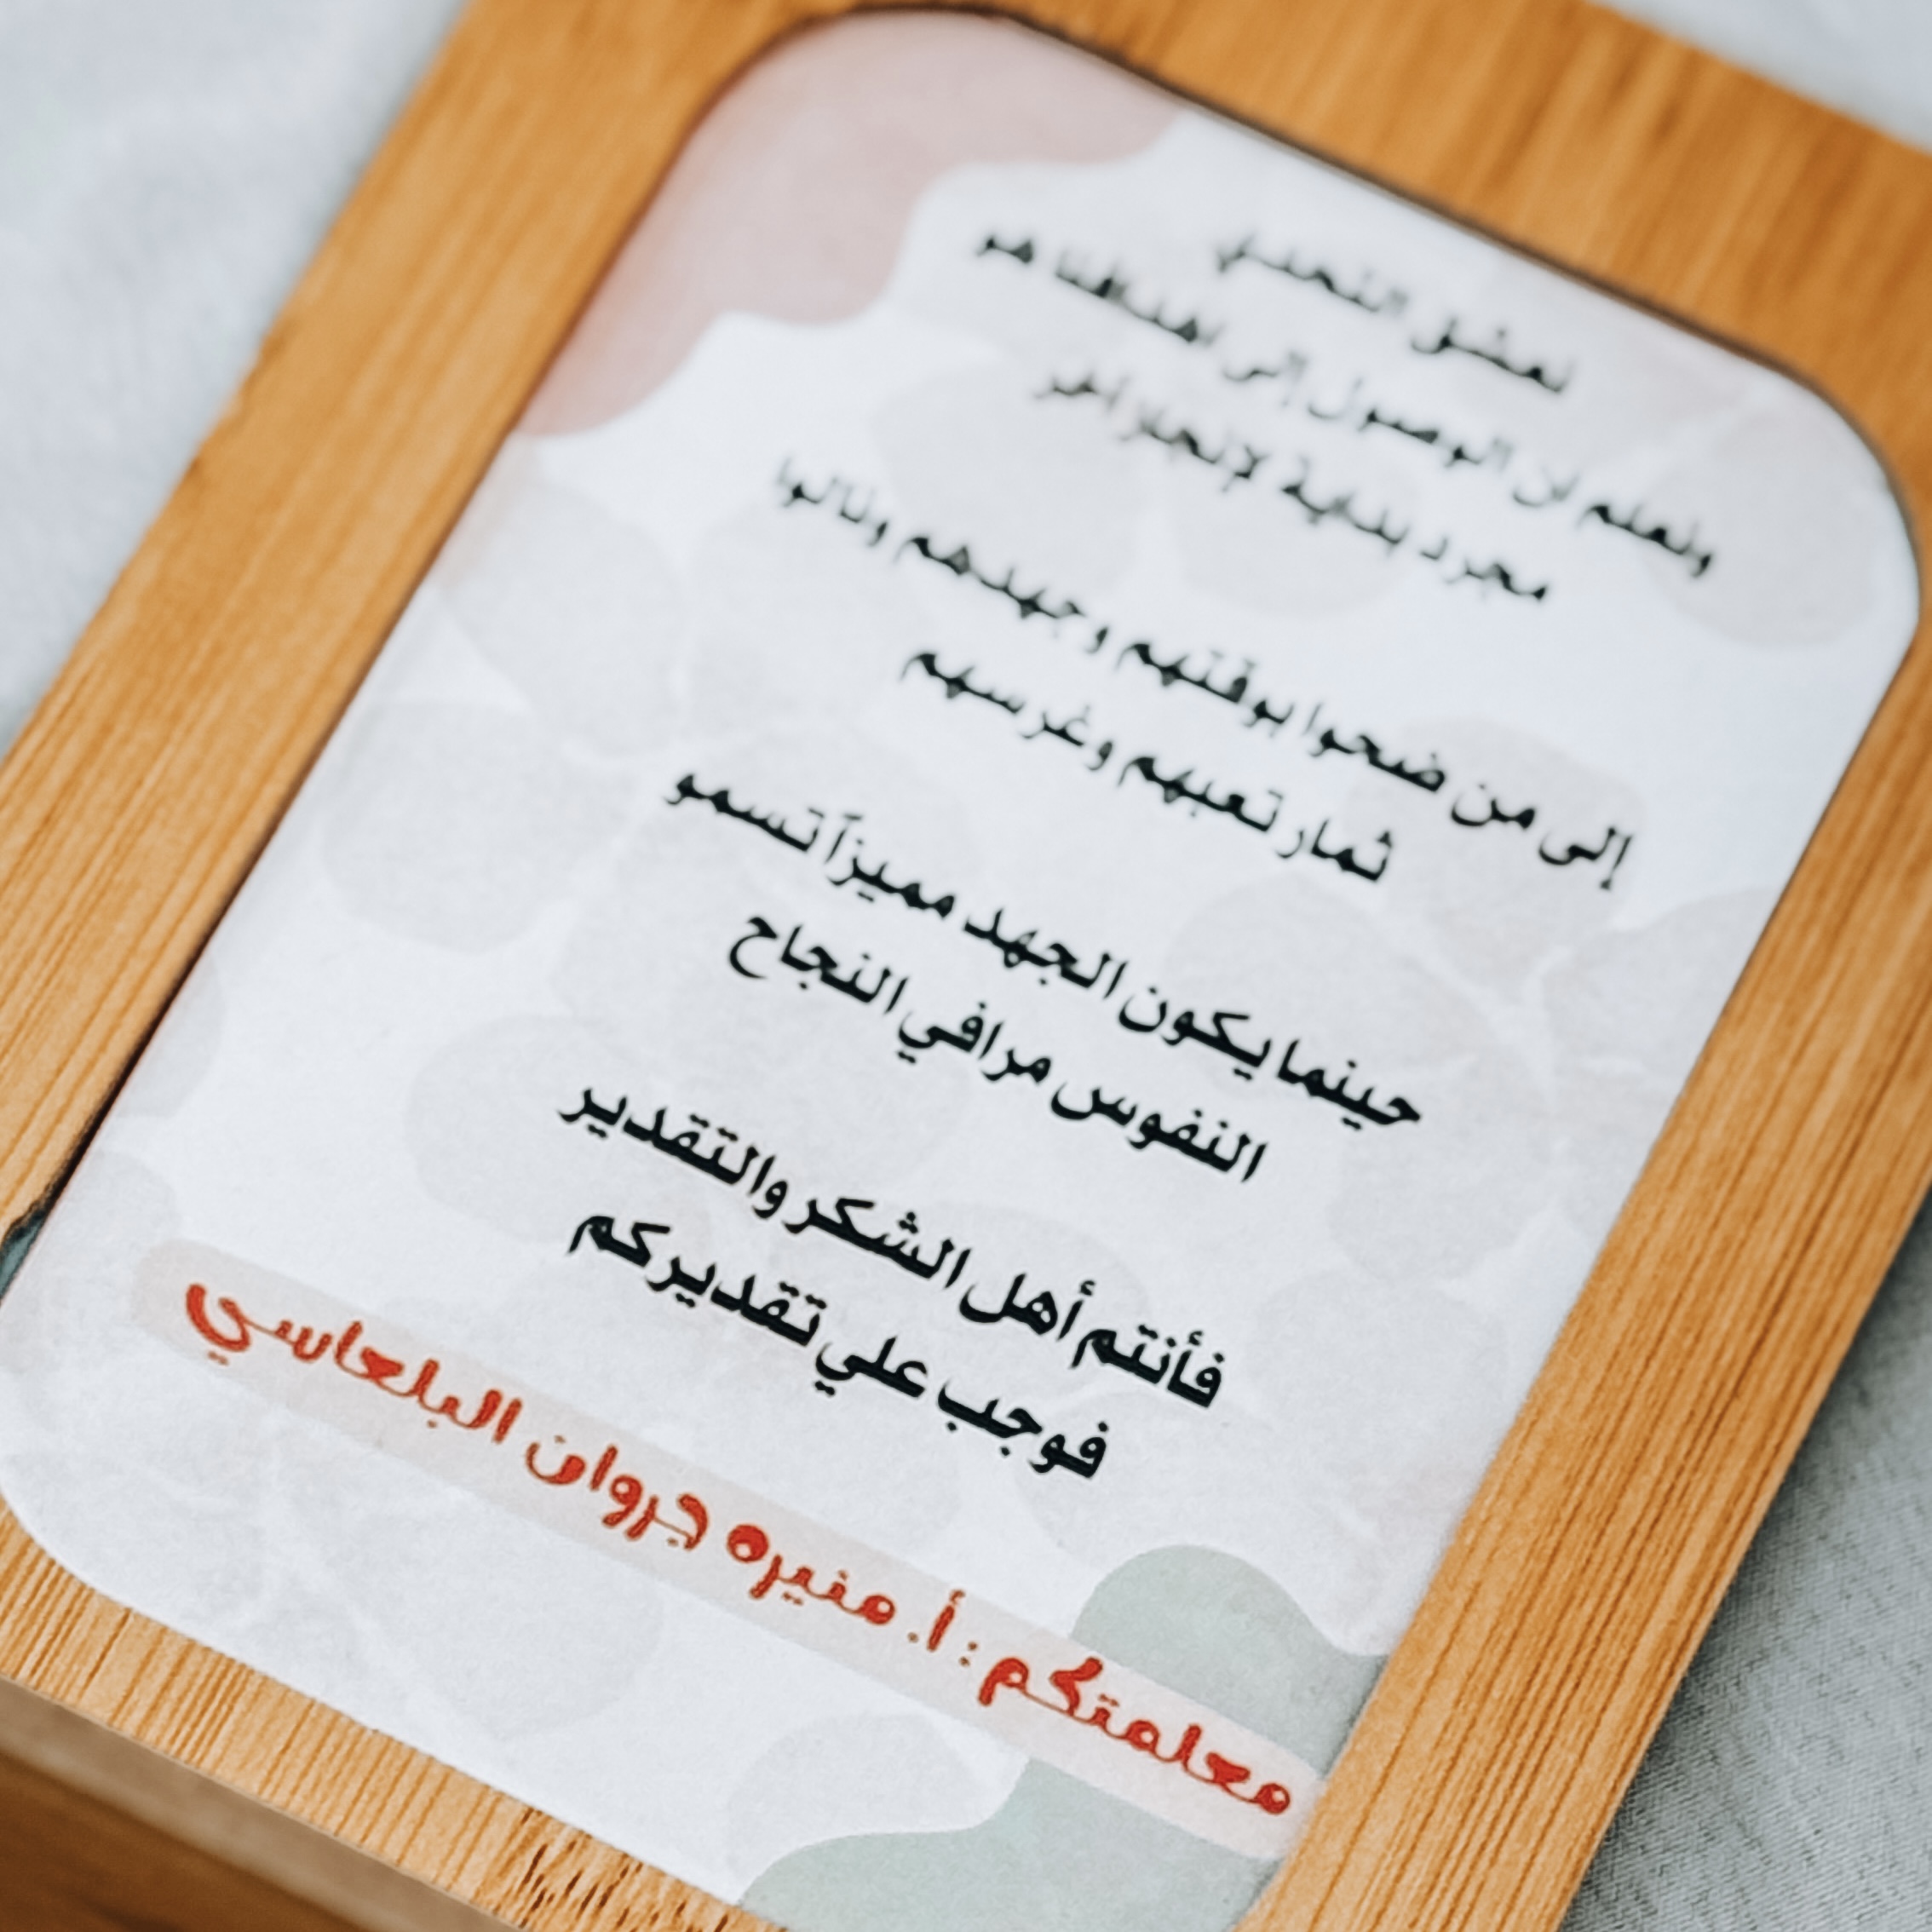 نعشق التحدي
ونعلم أن الوصول إلى أهدافنا هو
مجرد بداية لإنجاز آخر
إلى من ضحوا بوقتهم وجهدهم ونالوا
ثمار تعبهم وغرسهم
حينما يكون الجهد مميزاً تسمو
النفوس مرافي النجاح
فأنتم أهل الشكر والتقدير
فوجب علي تقديركم
معلمتكم : أ. منيره جروان البلعاسي